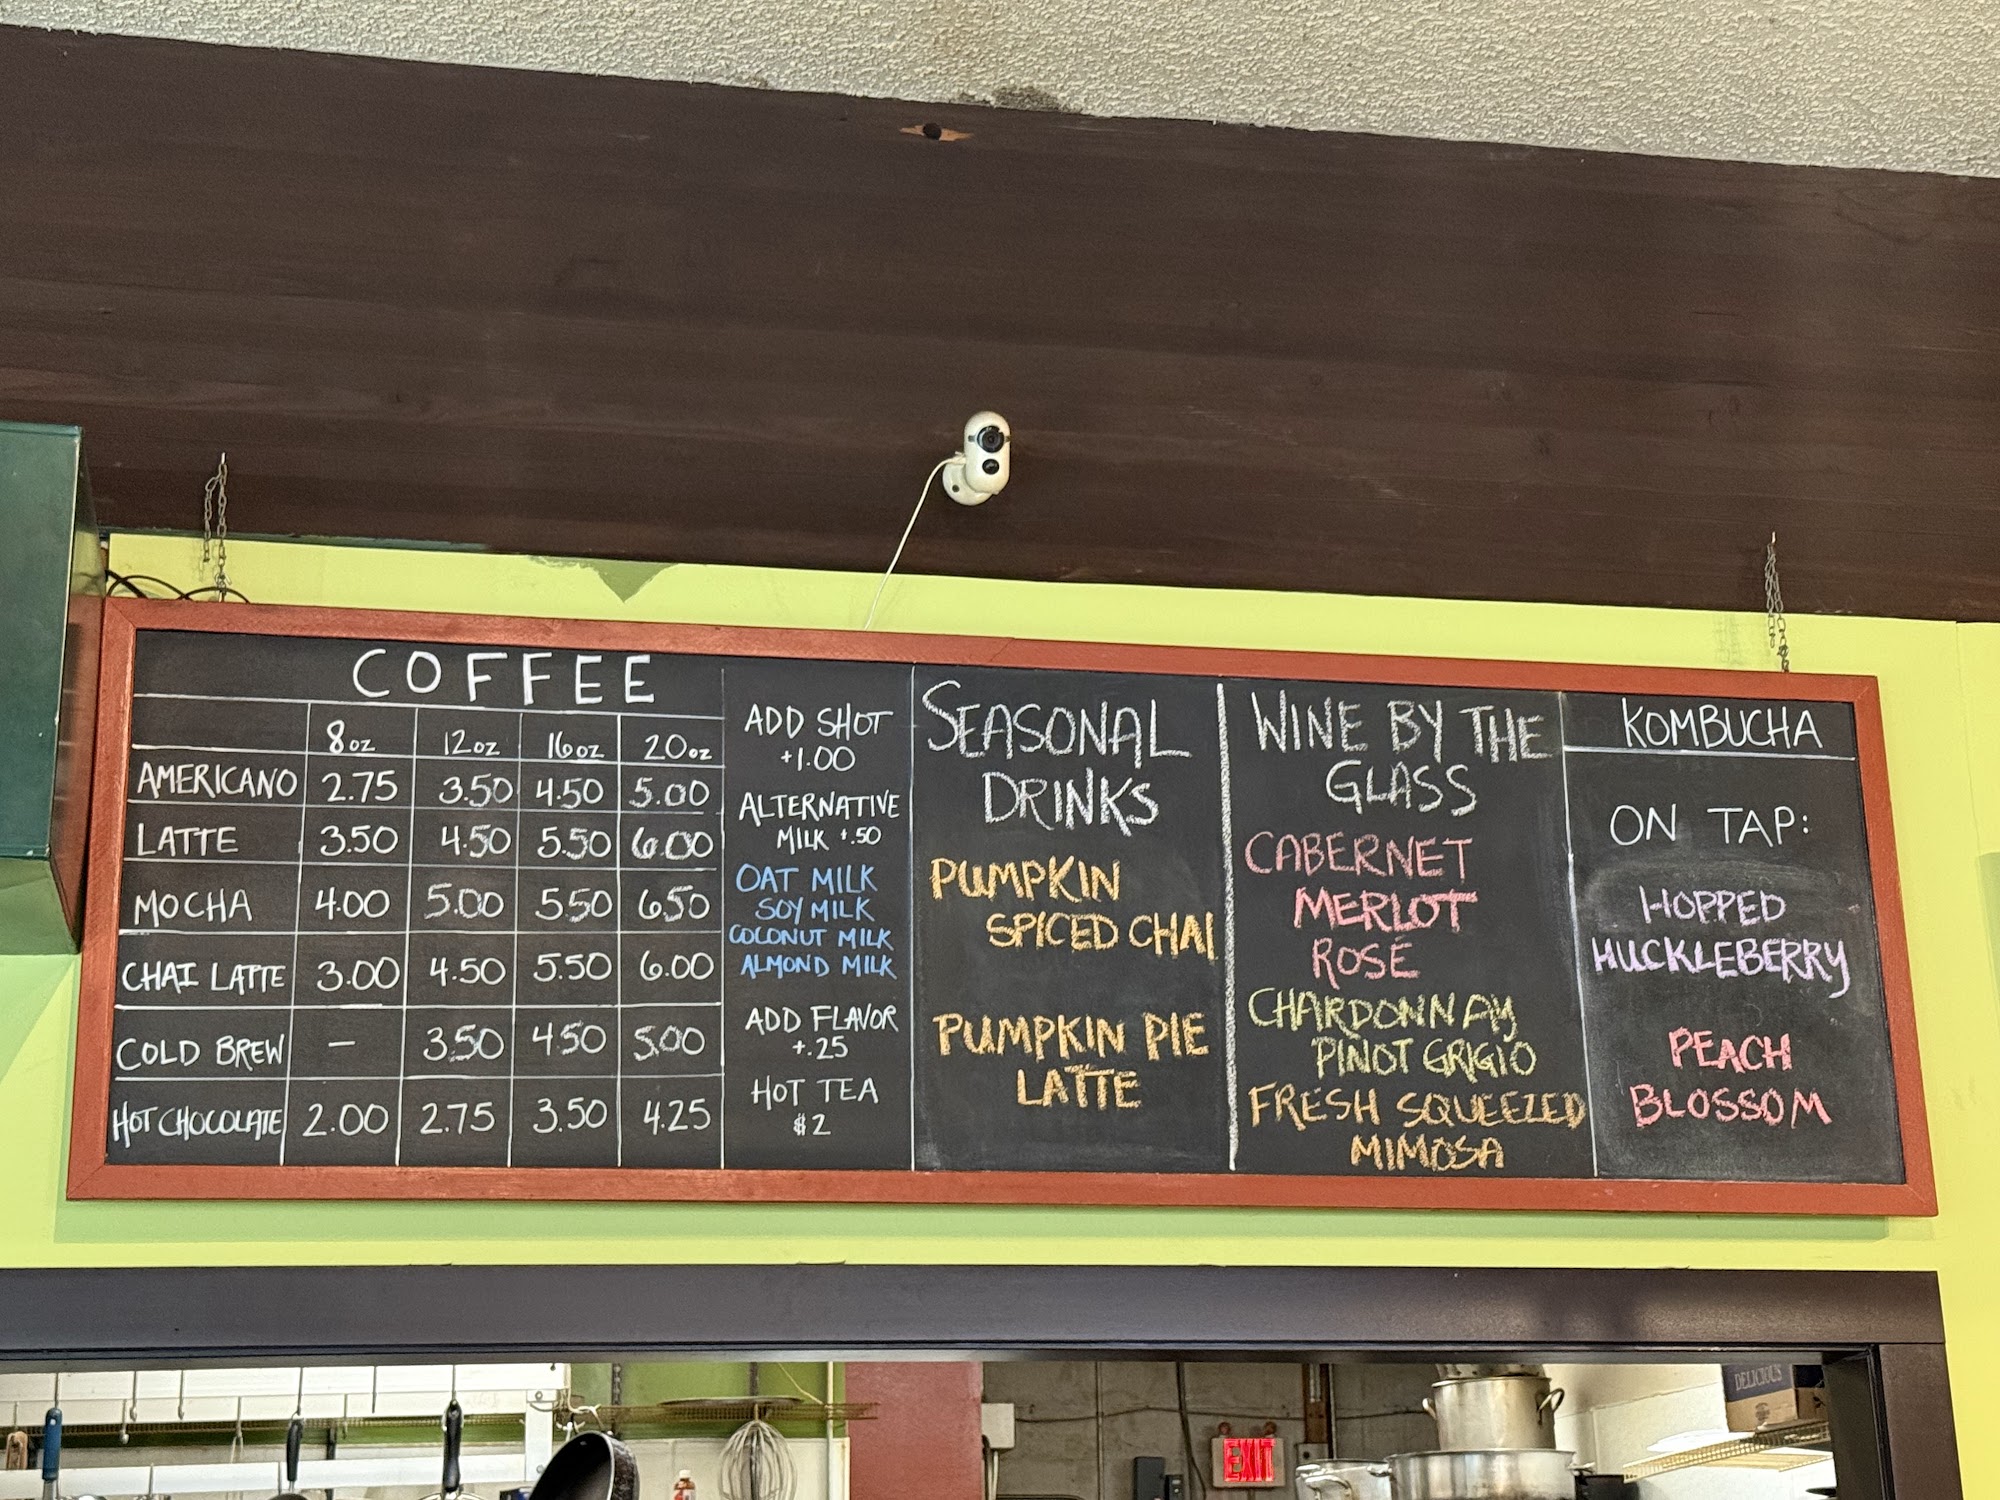 COFFEE
8oz 12oz 16oz 20oz
AMERICANO 2.75 3.50 4.50 5.00
LATTE 3.50 4.50 5.50 6.00
MOCHA 4.00 5.00 5.50 6.50
CHAI LATTE 3.00 4.50 5.50 6.00
COLD BREW — 3.50 4.50 5.00
HOT CHOCOLATE 2.00 2.75 3.50 4.25
ADD SHOT
+1.00
ALTERNATIVE
MILK +.50
OAT MILK
SOY MILK
COCONUT MILK
ALMOND MILK
ADD FLAVOR
+.25
HOT TEA
$2
SEASONAL
DRINKS
PUMPKIN
SPICED CHAI
PUMPKIN PIE
LATTE
WINE BY THE
GLASS
CABERNET
MERLOT
ROSE
CHARDONNAY
PINOT GRIGIO
FRESH SQUEEZED
MIMOSA
KOMBUCHA
ON TAP:
HOPPED
HUCKLEBERRY
PEACH
BLOSSOM
DELICIOUS
EXIT